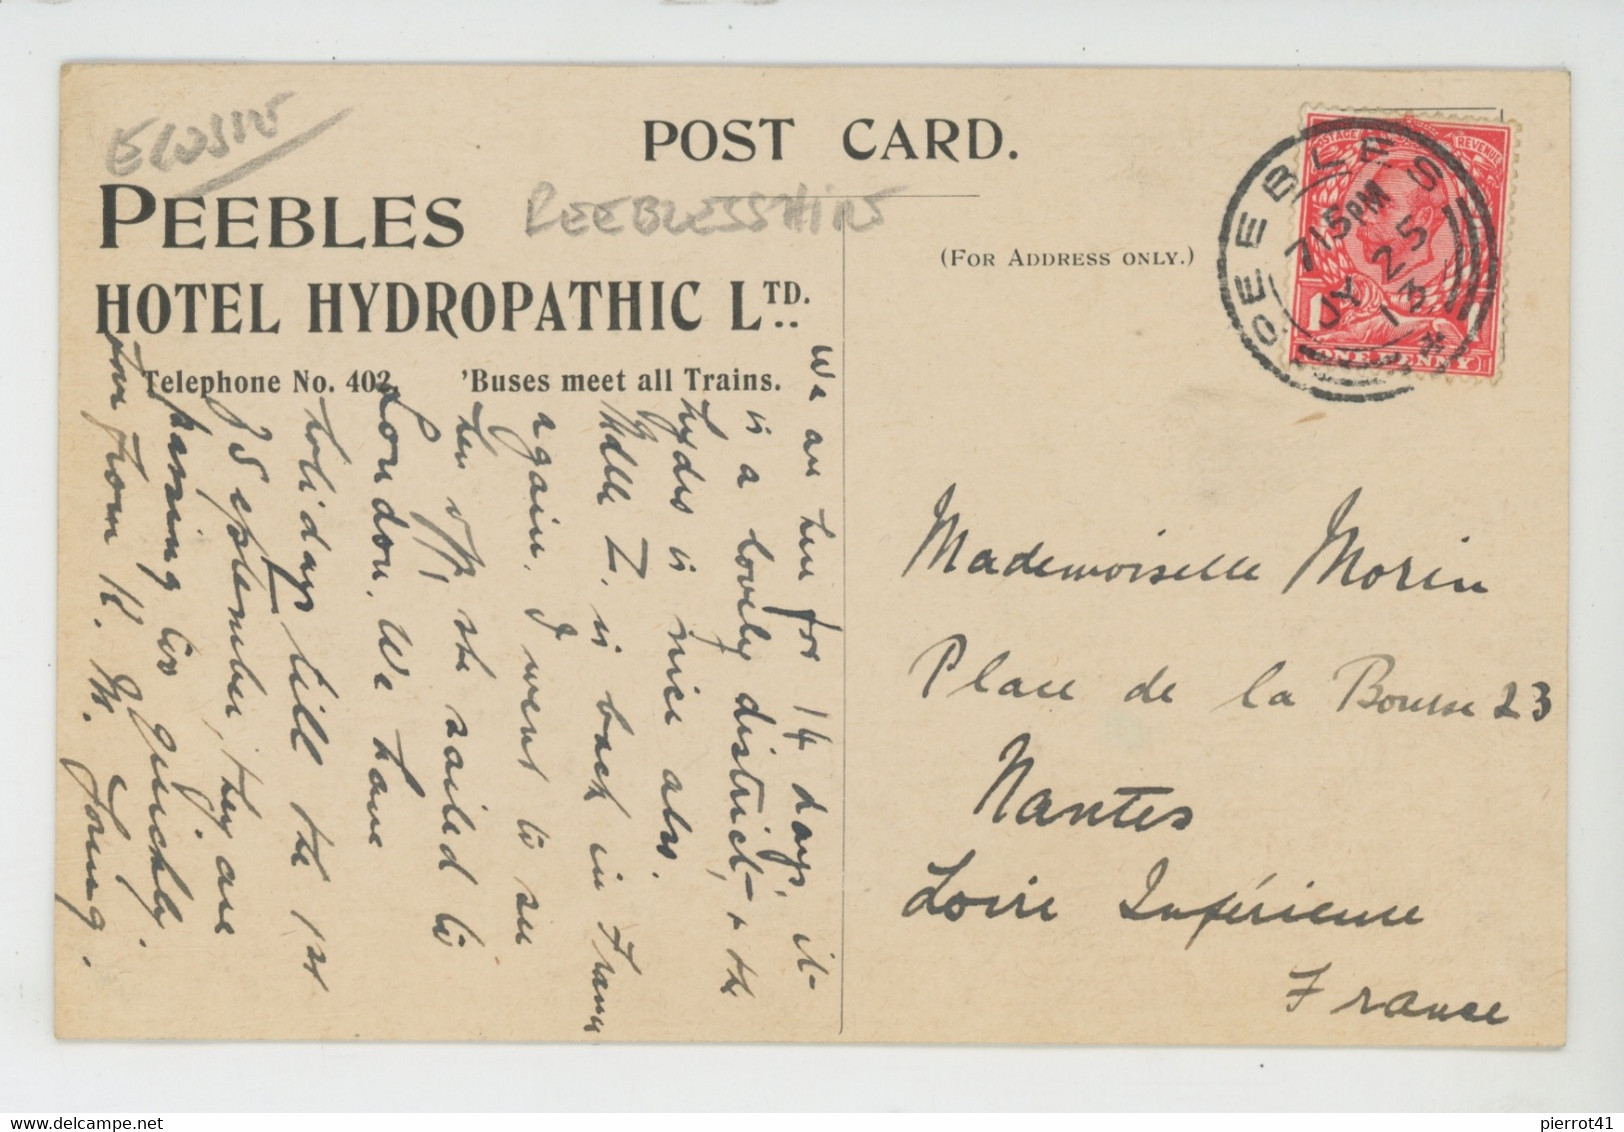 ECOSSE
POST CARD.
PEEBLES
PEEBLESSHIRE
HOTEL HYDROPATHIC LTD.
(FOR ADDRESS ONLY.)
Telephone No. 402. 'Buses meet all Trains.
PEEBLES
7 15 PM
JY 25
13
POSTAGE REVENUE
ONE PENNY
We are here for 14 days, it
is a lovely district, & the
hydro is nice also.
Mdlle L. is back in France
again. I went to see
her off, she sailed to
London. We have
holidays till the 1st
September, they are
passing too quickly.
Love from K. M. Young.
Mademoiselle Morin
Place de la Bourse 23
Nantes
Loire Inférieure
France
pierrot41